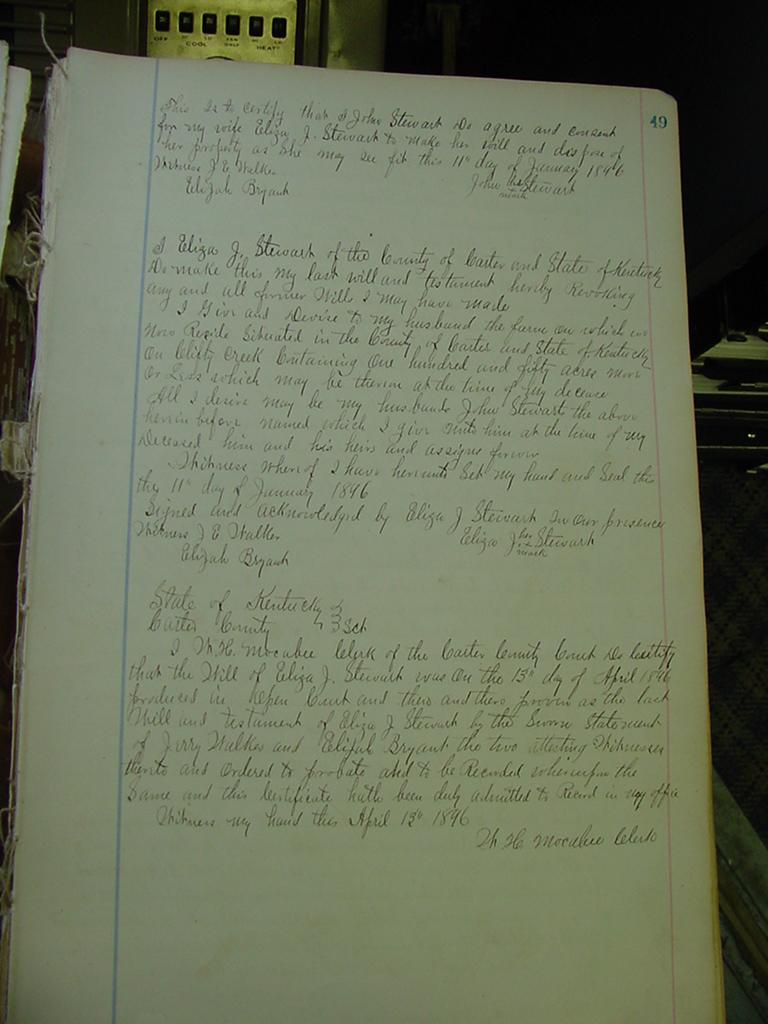 OFF COOL FAN ONLY HEAT
49
This Is to certify that I John Stewart Do agree and consent
for my wife Eliza J. Stewart to make her will and dispose of
her property as She may see fit this 11th day of January 1896
Witness J E Walker
John his Stewart
mark
Elijah Bryant
I Eliza J. Stewart of the County of Carter and State of Kentucky
Do make this my last will and testament hereby Revoking
any and all former Wills I may have made
I Give and Devise to my husband the farm on which we
Now Reside Situated in the County of Carter and State of Kentucky
On Clifty Creek Containing One hundred and fifty acres more
Or Less which may be theron at the time of my decease
All I desire may be my husbands John Stewart the above
herein before named which I give unto him at the time of my
Deceased him and his heirs and assigns forever
Witness wherof I have hereunto Set my hand and Seal this
the 11th day of January 1896
Signed and acknowledged by Eliza J Stewart In Our presence
Witness J E Walker
Eliza J her x Stewart
mark
Elijah Bryant
State of Kentucky }
Carter County } Sct
I W. H. Mocabee Clerk of the Carter County Court Do Certify
that the Will of Eliza J. Stewart was On the 13th day of April 1896
produced in Open Court and there and there proven as the last
Will and testament of Eliza J Stewart by the Sworn Statement
of Jerry Walker and Elijah Bryant the two attesting Witnesses
thereto and Ordered to probate and to be Recorded wherupon the
Same and this Certificate hath been duly admitted to Record in my office
Witness my hand this April 13th 1896
W. H. Mocabee Clerk